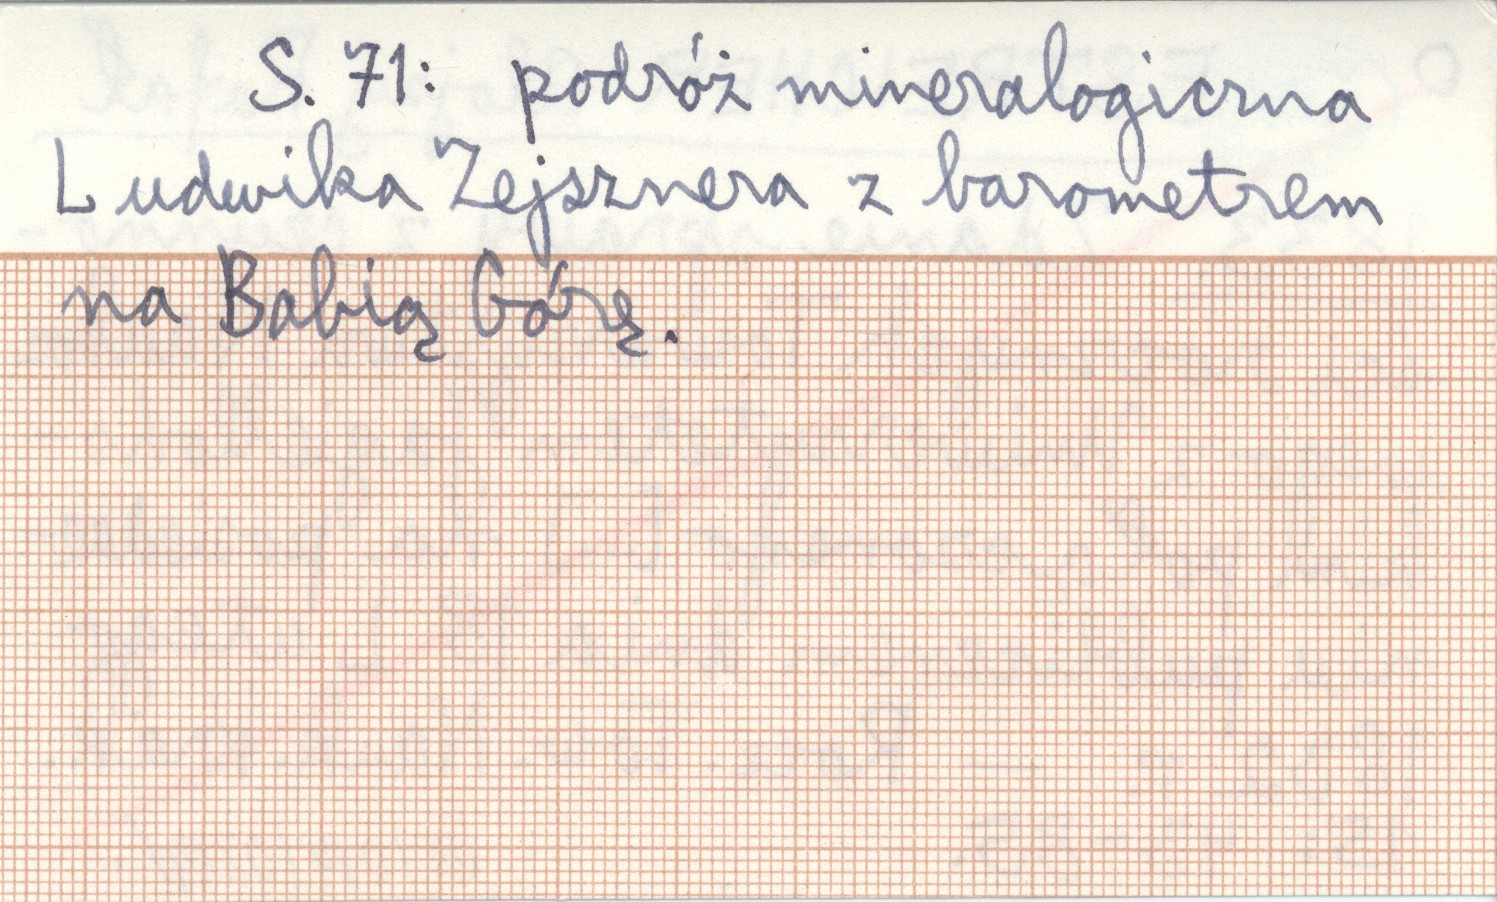 S. 71: podróż mineralogiczna
Ludwika Zejsznera z barometrem
na Babią Górę.